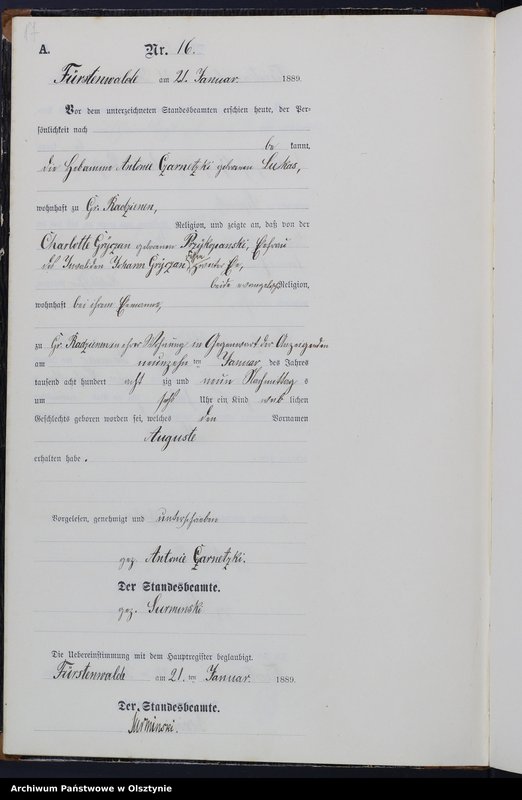 A. Nr. 16.
Fürstenwalde am 21. Januar 1889.
Vor dem unterzeichneten Standesbeamten erschien heute, der Per-
sönlichkeit nach
be kannt,
die Hebamme Antonie Czarnetzki geborene Lukas,
wohnhaft zu Gr. Radzienen,
Religion, und zeigte an, daß von der
Charlotte geborenen Ehefrau
des Invaliden Johann zweiter Ehe,
beide evangelischer Religion,
wohnhaft bei ihrem Ehemanne,
zu Gr. Radzienen in ihrer Wohnung in Gegenwart der Anzeigenden
am neunzehn ten Januar des Jahres
tausend acht hundert acht zig und neun Nachmittag s
um Uhr ein Kind weib lichen
Geschlechts geboren worden sei, welches den Vornamen
Auguste
erhalten habe.
Vorgelesen, genehmigt und unterschrieben
gez. Antonie Czarnetzki.
Der Standesbeamte.
gez. Surminski
Die Uebereinstimmung mit dem Hauptregister beglaubigt.
Fürstenwalde am 21. ten Januar 1889.
Der Standesbeamte.
Surminski.
Archiwum Państwowe w Olsztynie